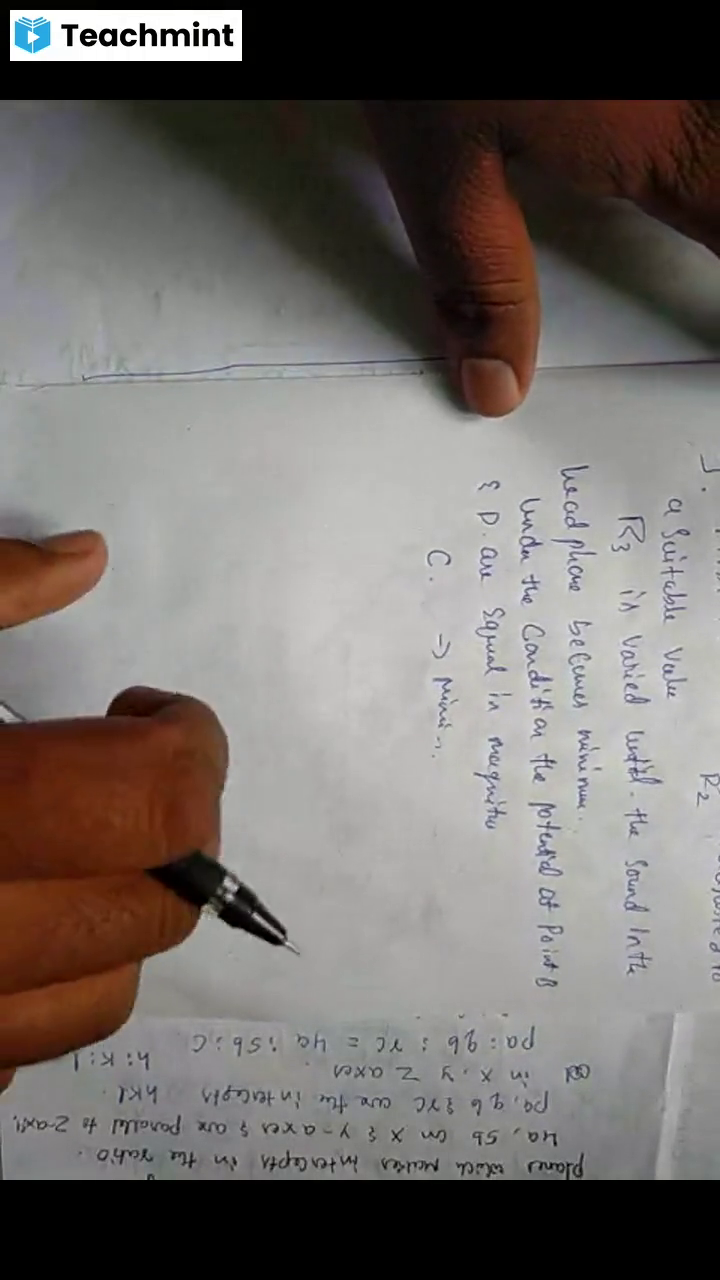 Teachmint
R2
a suitable value
R3 is varied until. the sound in the
head phone becomes minimum.
Under the Condition the potential at Point B
& D. are equal in magnitu
C. → Mini
planes which makes intercepts in the ratio.
4a, 5b on x & y-axes & are parallel to z-axis.
pa, qb & rc are the intercepts hkl
in x, y, z axes.
h:k:l
pa : qb : rc = 4a : 5b : C.